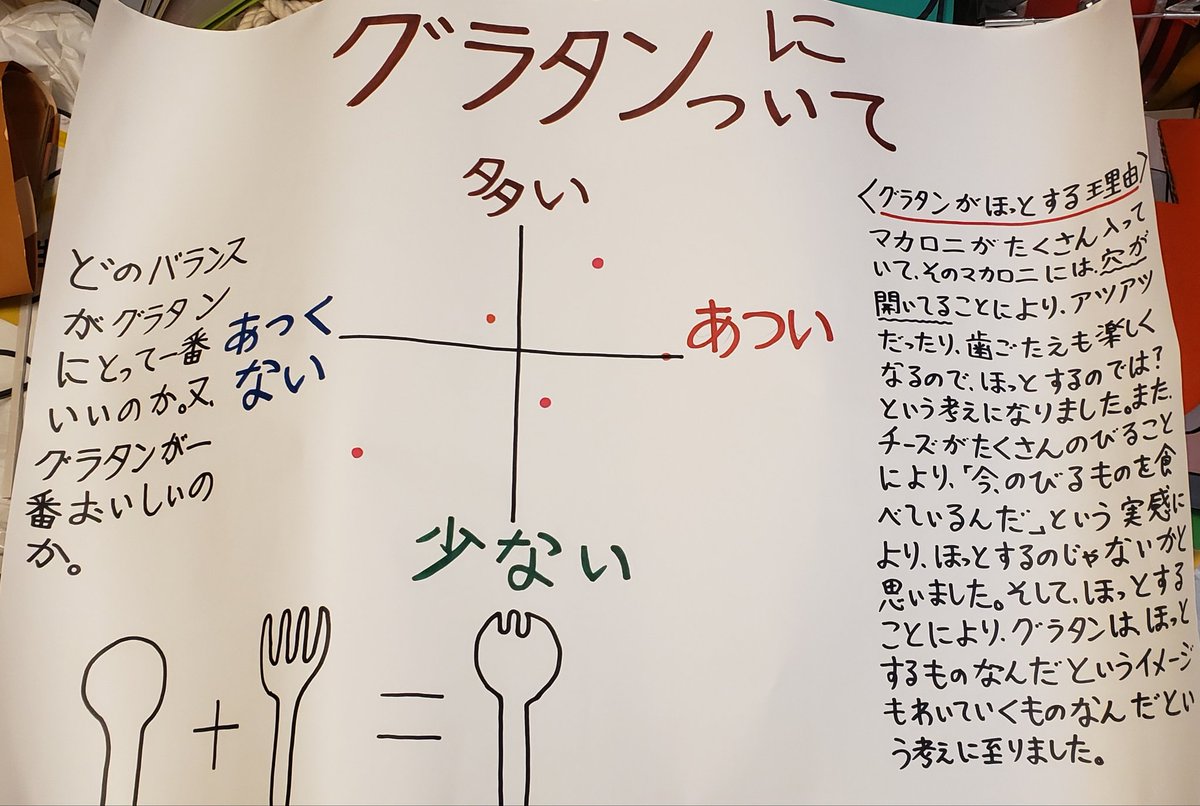 グラタンに
ついて
多い
あっく
ない
あつい
少ない
どのバランス
がグラタン
にとって一番
いいのか。又、
グラタンが一
番おいしいの
か。
＋
＝
〈グラタンがほっとする理由〉
マカロニがたくさん入って
いて、そのマカロニには、穴が
開いてることにより、アツアツ
だったり、歯ごたえも楽しく
なるので、ほっとするのでは？
という考えになりました。また、
チーズがたくさんのびること
により、「今、のびるものを食
べているんだ」という実感に
より、ほっとするのじゃないかと
思いました。そして、ほっとする
ことにより、グラタンは、ほっと
するものなんだというイメージ
もわいていくものなんだとい
う考えに至りました。